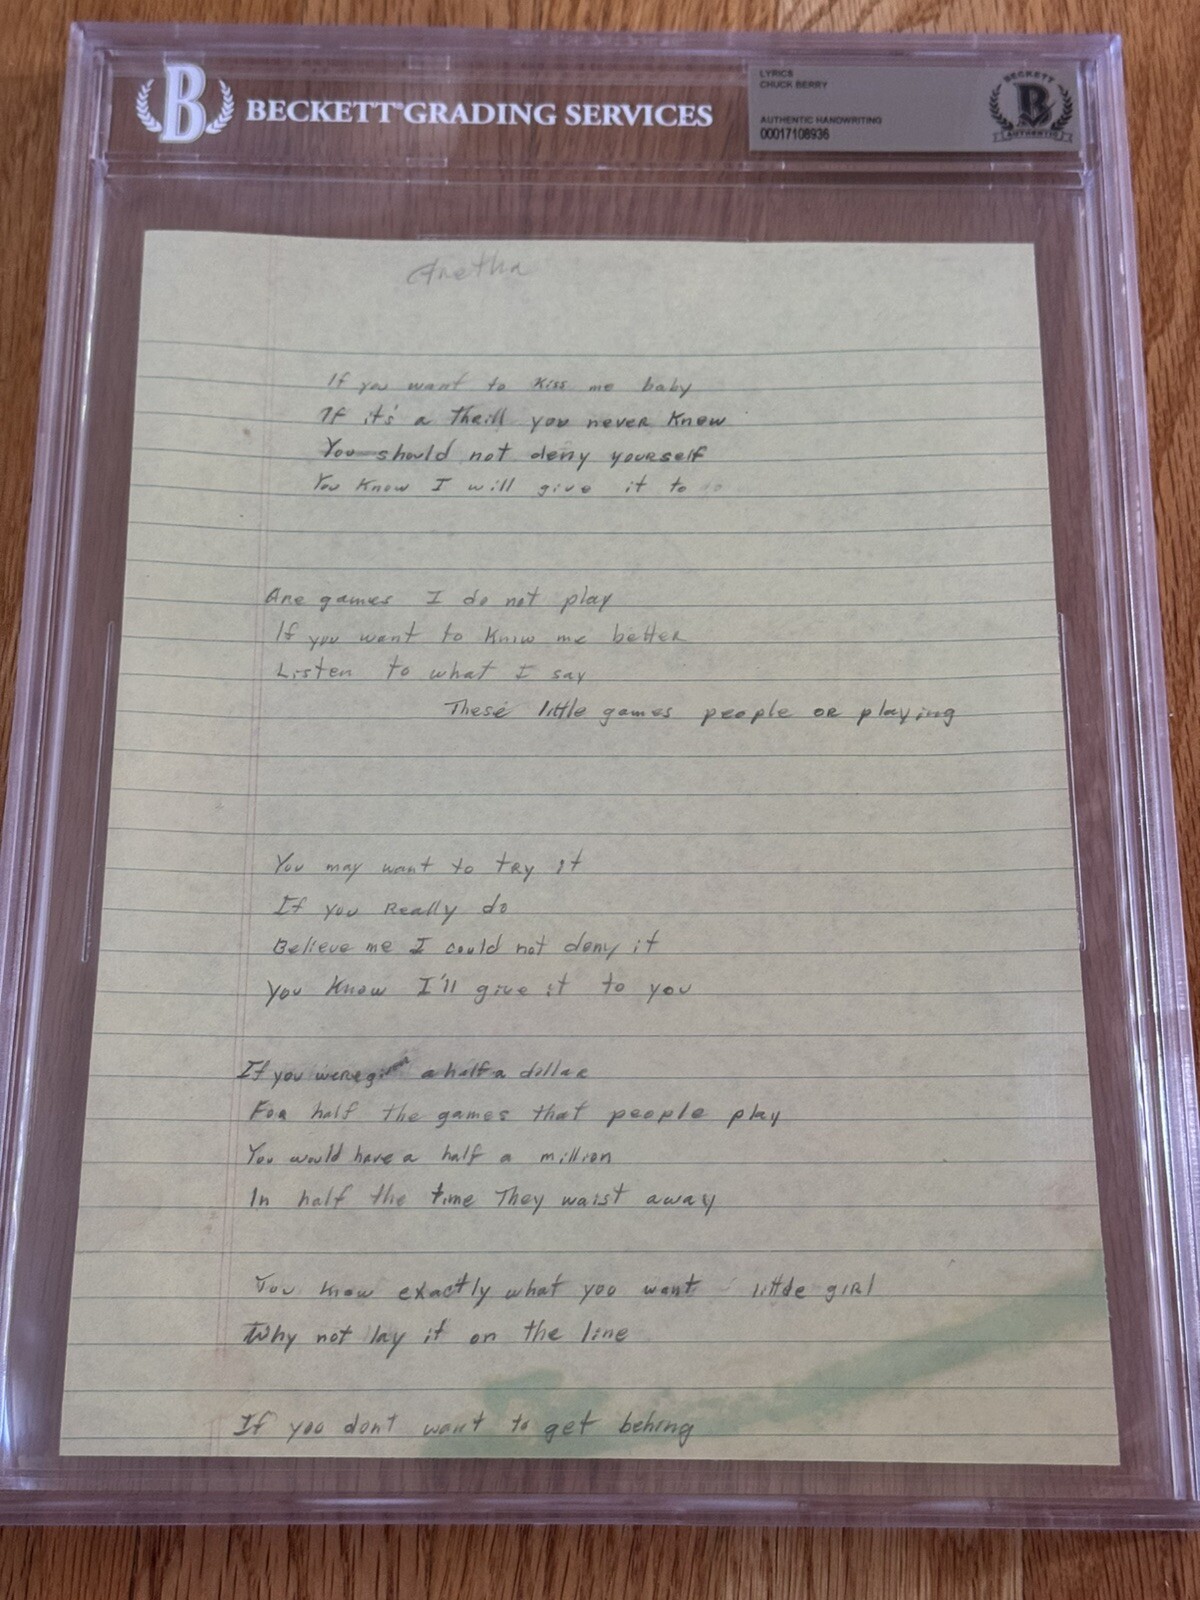 B BECKETT® GRADING SERVICES
LYRICS
CHUCK BERRY
AUTHENTIC HANDWRITING
00017108936
BECKETT
AUTHENTIC
Aretha
If you want to kiss me baby
If it's a thrill you never knew
You should not deny yourself
You know I will give it to
Are games I do not play
If you want to know me better
Listen to what I say
These little games people or playing
You may want to try it
If you really do
Believe me I could not deny it
You know I'll give it to you
If you were a half a dollar
For half the games that people play
You would have a half a million
In half the time they waist away
You know exactly what you want little girl
Why not lay it on the line
If you dont want to get behing